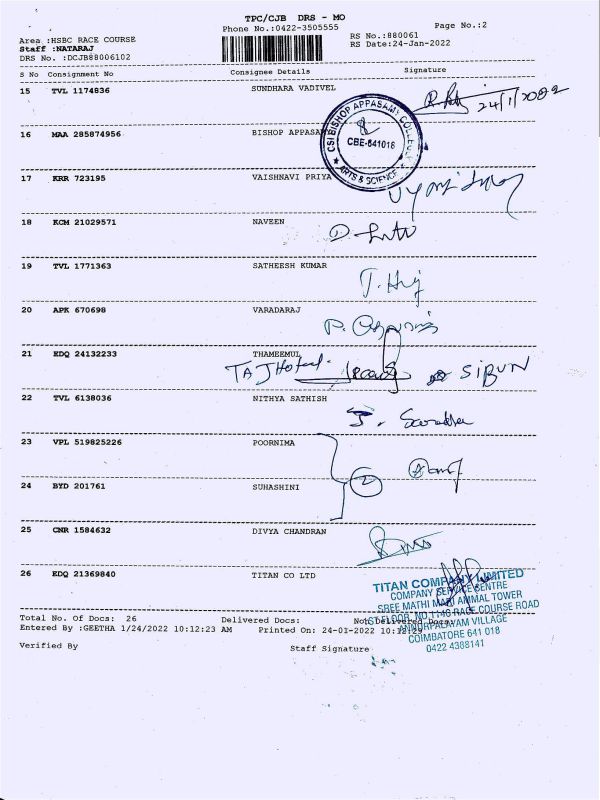 TPC/CJB DRS - MO
Phone No.:0422-3505555
Page No.:2
Area :HSBC RACE COURSE
RS No.:880061
Staff :NATARAJ
RS Date:24-Jan-2022
DRS No. :DCJB88006102
S No Consignment No Consignee Details Signature
15 TVL 1174836 SUNDHARA VADIVEL
24/1/2022
16 MAA 285874956 BISHOP APPASAMY
CSI BISHOP APPASAMY COLLEGE
CBE-641018
ARTS & SCIENCE
17 KRR 723195 VAISHNAVI PRIYA
18 KCM 21029571 NAVEEN
19 TVL 1771363 SATHEESH KUMAR
20 APK 670698 VARADARAJ
21 EDQ 24132233 THAMEEMUL
TAJ Hotel SIBUN
22 TVL 6138036 NITHYA SATHISH
23 VPL 519825226 POORNIMA
2
24 BYD 201761 SUHASHINI
25 CNR 1584632 DIVYA CHANDRAN
26 EDQ 21369840 TITAN CO LTD
TITAN COMPANY LIMITED
COMPANY SERVICE CENTRE
SREE MATHI MANI AMMAL TOWER
RACE COURSE ROAD
VILLAGE
COIMBATORE 641 018
0422 4388141
Total No. Of Docs: 26 Delivered Docs: Not Delivered Docs:
Entered By :GEETHA 1/24/2022 10:12:23 AM Printed On: 24-01-2022
Verified By Staff Signature